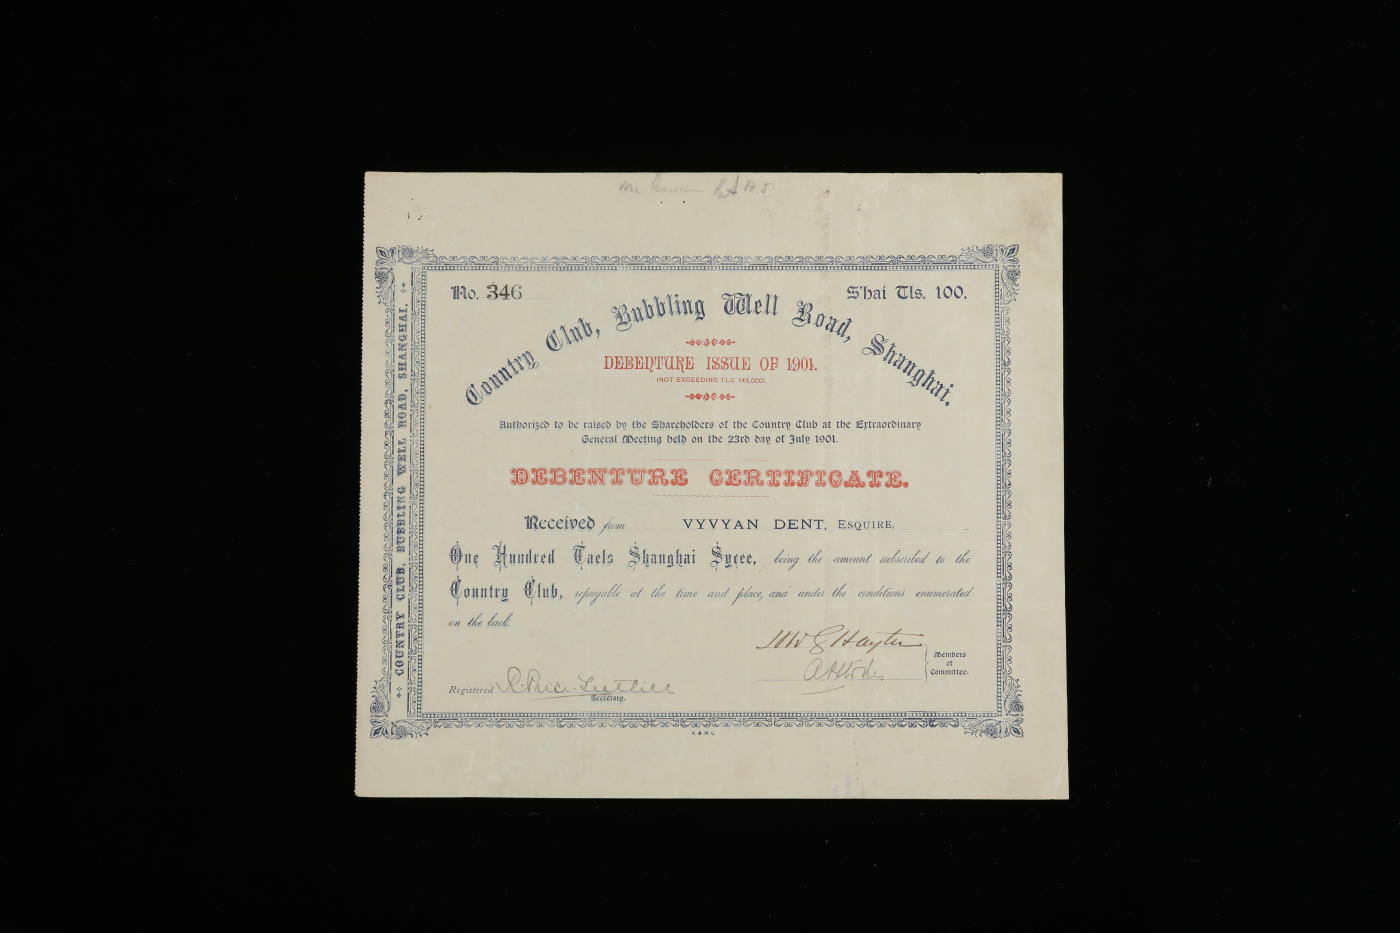 No. 346
S'hai Tls. 100.
Country Club, Bubbling Well Road, Shanghai.
DEBENTURE ISSUE OF 1901.
(NOT EXCEEDING TLS. 145,000).
Authorized to be raised by the Shareholders of the Country Club at the Extraordinary
General Meeting held on the 23rd day of July 1901.
DEBENTURE CERTIFICATE.
Received from VYVYAN DENT, ESQUIRE,
One Hundred Taels Shanghai Sycee, being the amount subscribed to the
Country Club, repayable at the time and place, and under the conditions enumerated
on the back.
Members
of
Committee.
Registered
Secretary.
K & W L.
COUNTRY CLUB, BUBBLING WELL ROAD, SHANGHAI.